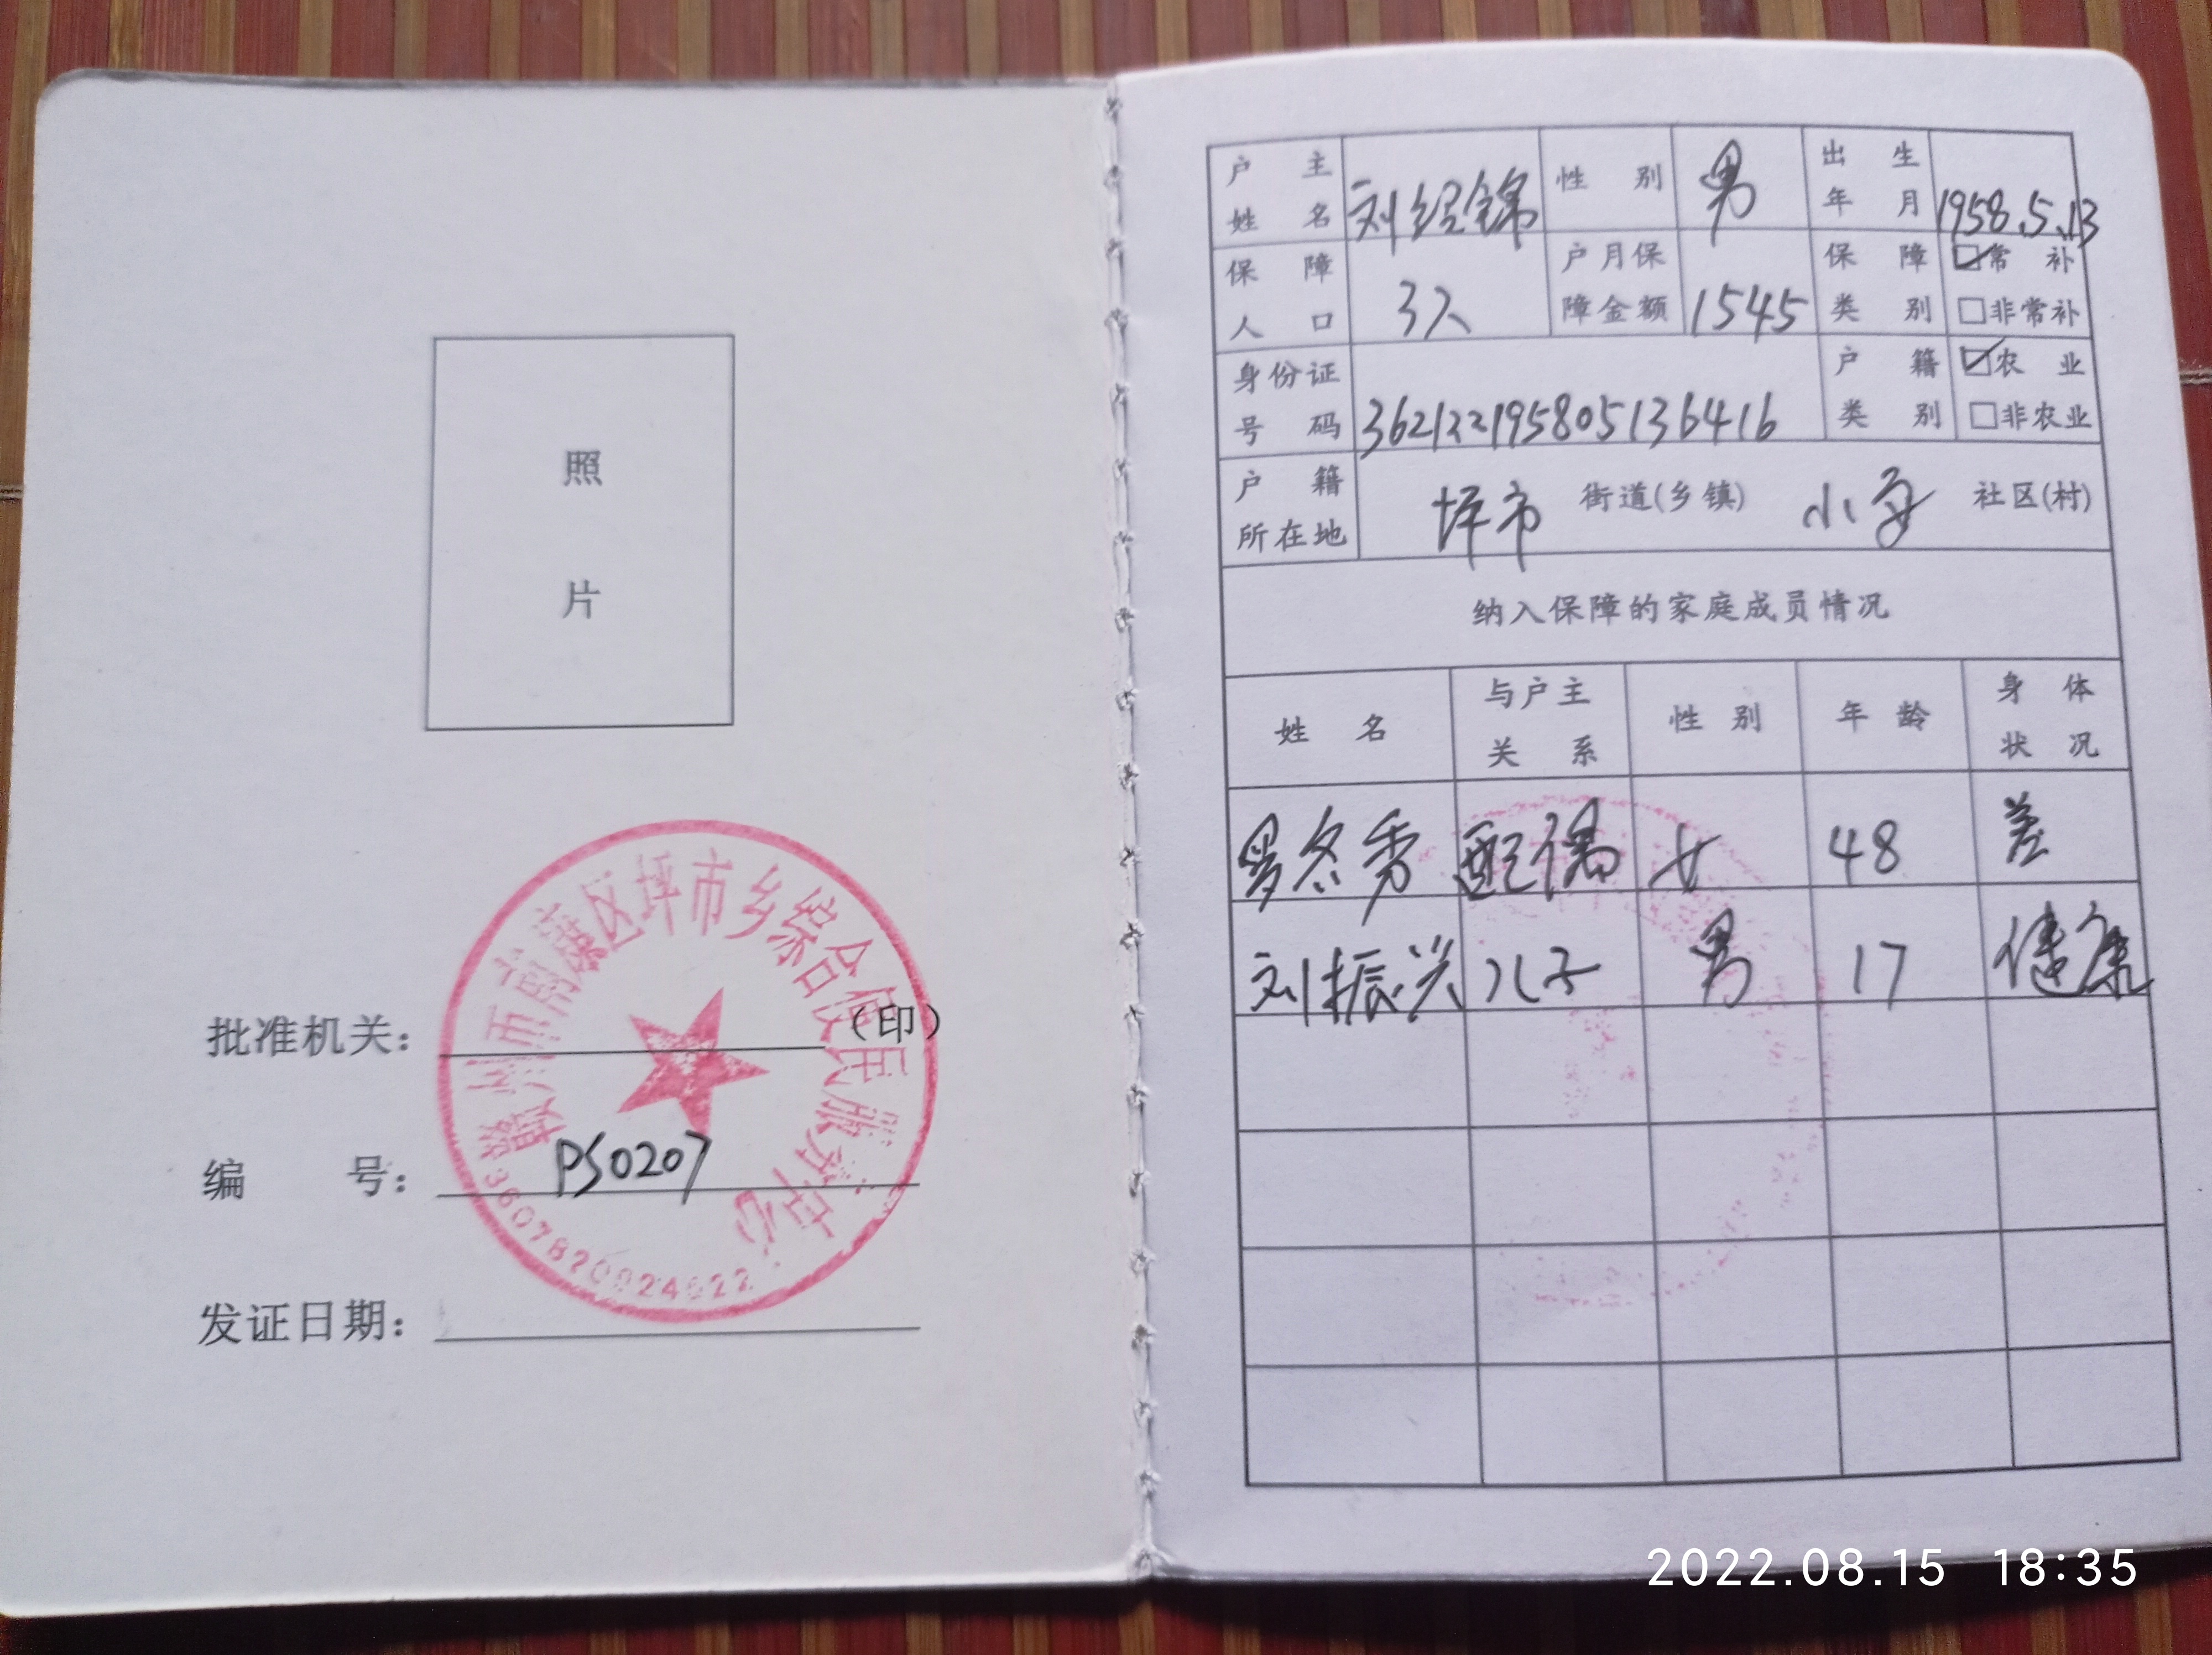 照
片
批准机关：（印）
编 号：PS0207
发证日期：
赣州市南康区坪市乡综合便民服务中心
户主姓名 刘经锦 性别 男 出生年月 1958.5.13
保障人口 3人 户月保障金额 1545 保障类别 ☑常补 □非常补
身份证号码 362122195805136416 户籍类别 ☑农业 □非农业
户籍所在地 坪市 街道(乡镇) 小 社区(村)
纳入保障的家庭成员情况
姓名 与户主关系 性别 年龄 身体状况
罗冬秀 配偶 女 48 差
刘振兴 儿子 男 17 健康
2022.08.15 18:35